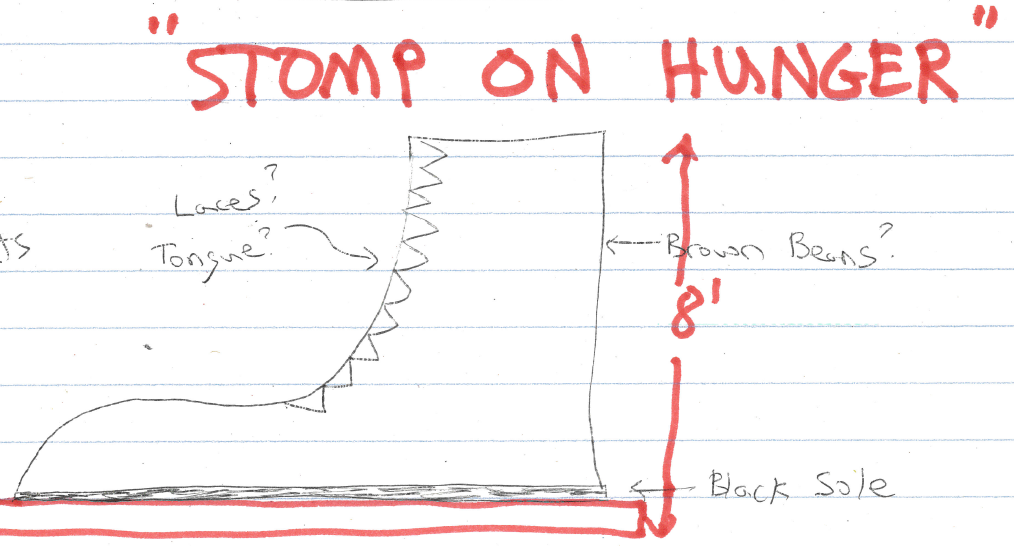 "STOMP ON HUNGER"
Laces?
Tongue?
Brown Beans?
8'
Black Sole